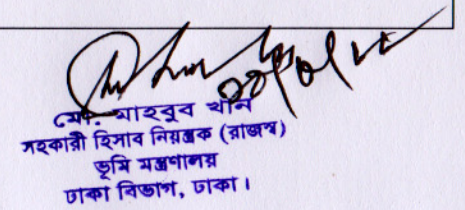 মো: মাহবুব খান
সহকারী হিসাব নিয়ন্ত্রক (রাজস্ব)
ভূমি মন্ত্রণালয়
ঢাকা বিভাগ, ঢাকা।